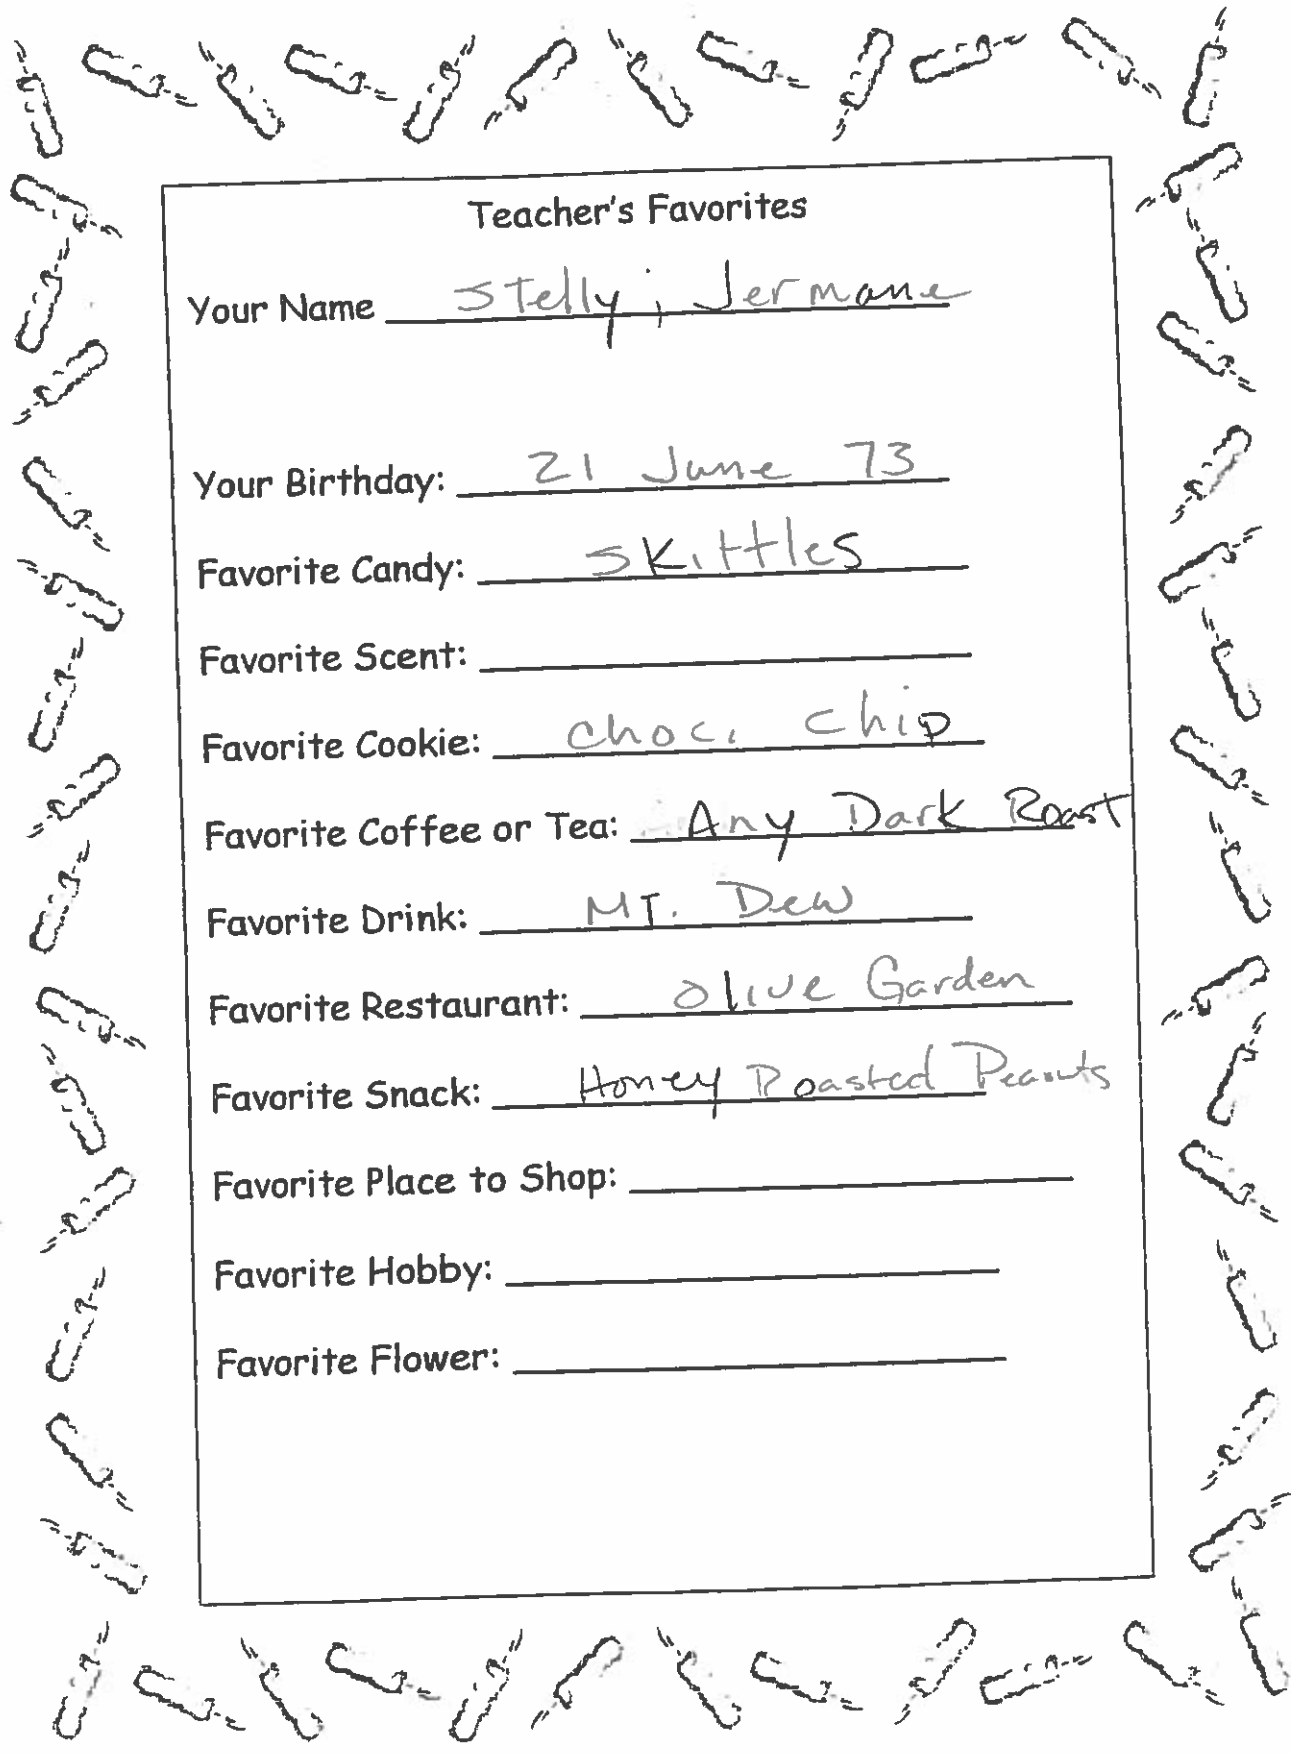 Teacher's Favorites
Your Name Stelly, Jermane
Your Birthday: 21 June 73
Favorite Candy: Skittles
Favorite Scent:
Favorite Cookie: choc. chip
Favorite Coffee or Tea: Any Dark Roast
Favorite Drink: MT. Dew
Favorite Restaurant: Olive Garden
Favorite Snack: Honey Roasted Peanuts
Favorite Place to Shop:
Favorite Hobby:
Favorite Flower: